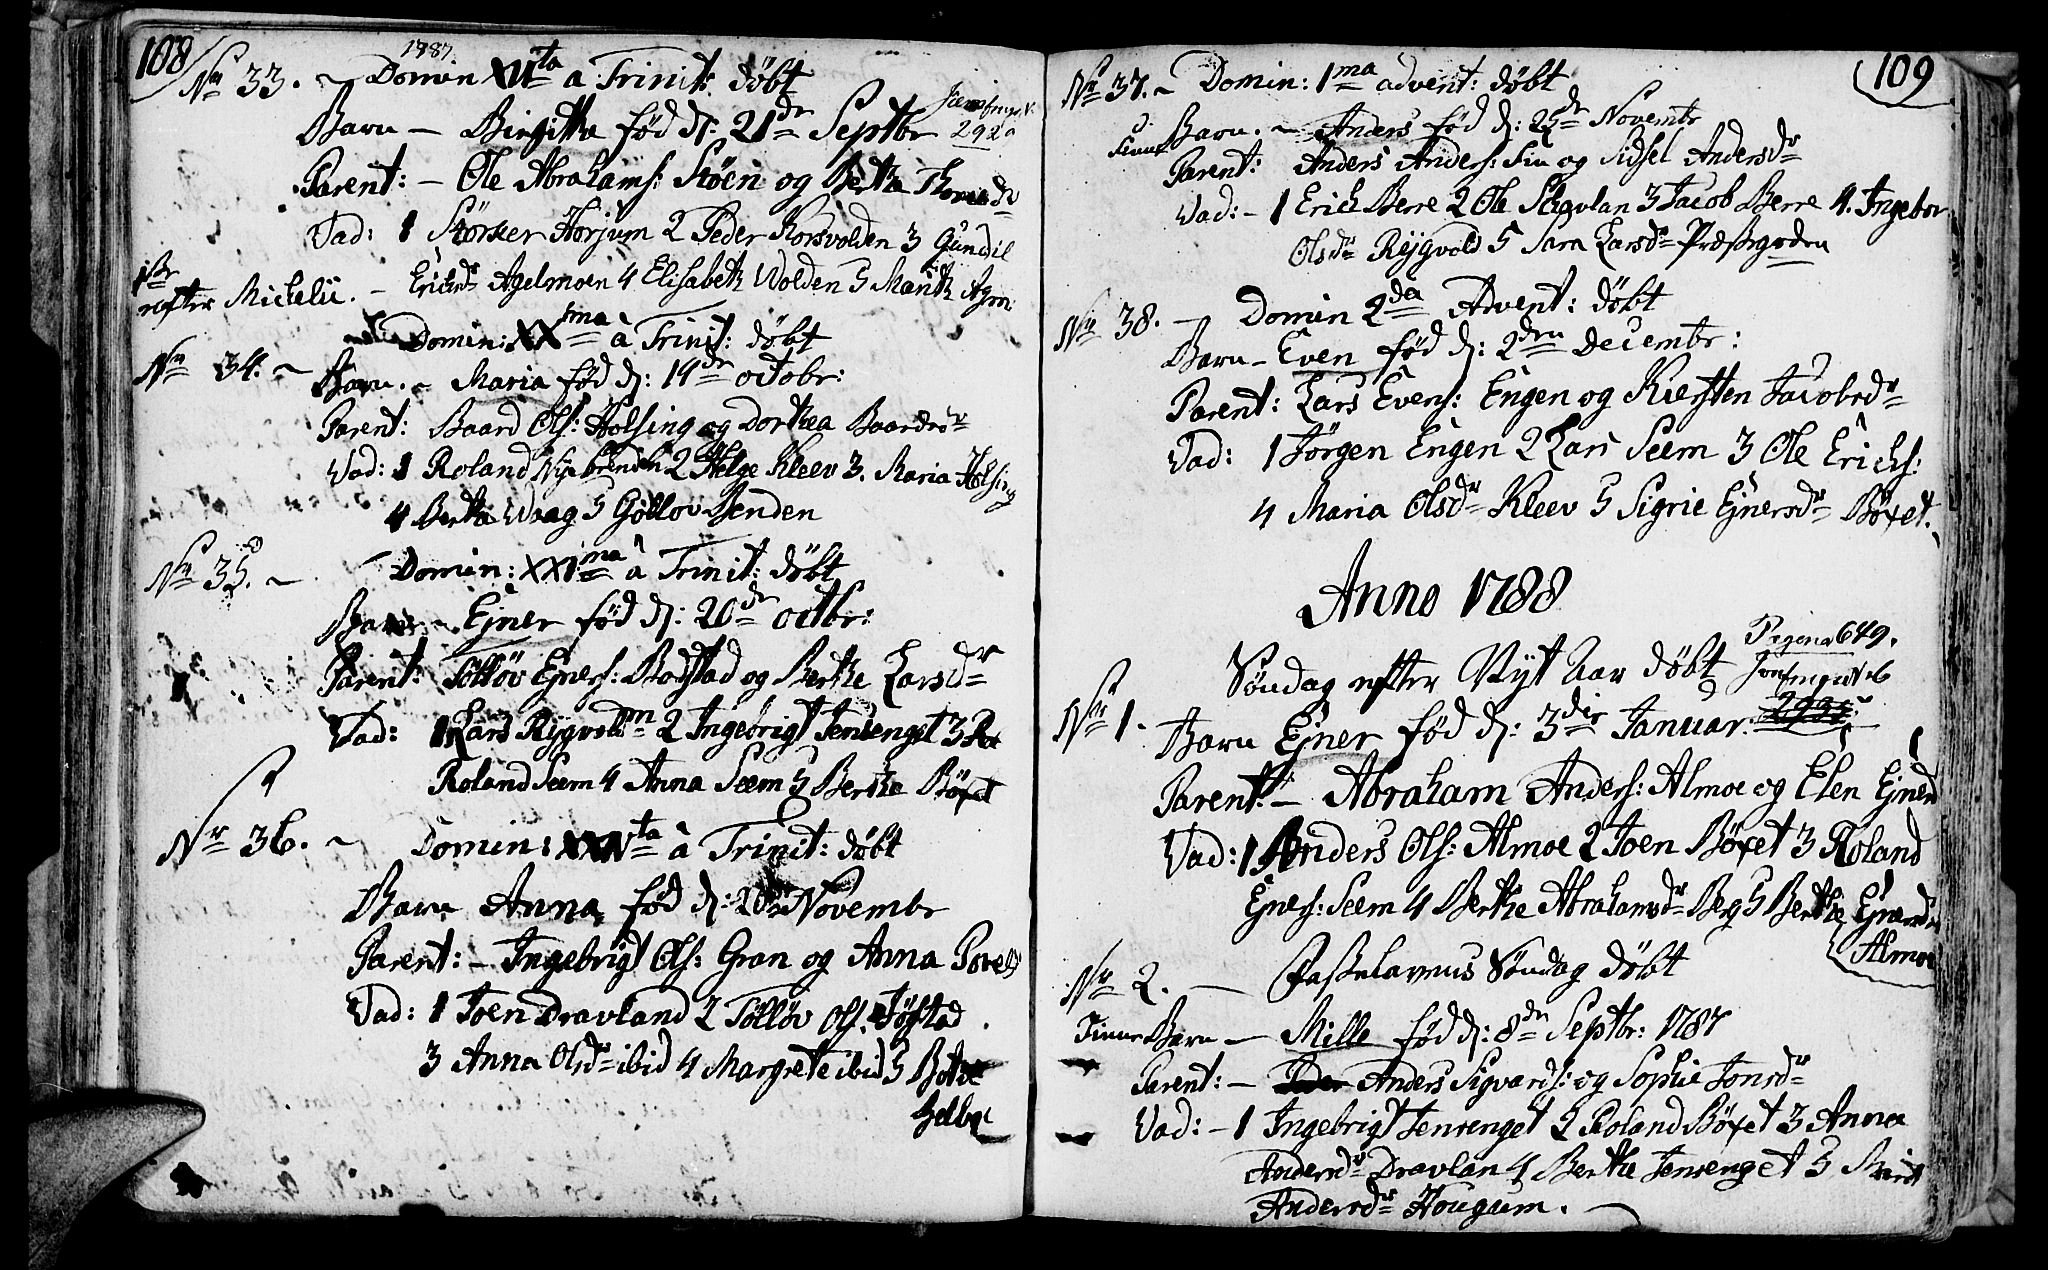 108
1787
No 33. ~ Domin XVIta a Trinit: døbt
Barn — Birgitha fød d: 21de Septbr
292
Parent: — Ole Abrahams: Støen og Berthe
Vad: 1 Störker Horjum 2 Peder Korsvolden 3 Gundil
efter Michelii. — Erichsdr Agelmoen 4 Elisabeth Volden 5 Marith Agm:
Domin: XXma a Trinit: døbt
No 34. ~ Barn. ~ Maria fød d: 14de octobr:
Parent: Baard Ols: Holsing og Dorthea Baardsdr
Vad: 1 Roland Nye brenden 2 Helge Kleev 3. Maria Holsing
4 Bertha Waag 5 Gjøllov Benden
No 35. ~ Domin: XXIma a Trinit: døbt
Barn ~ Ejner fød d: 20de octbr:
Parent: Tølløv Ejners: Bodstad og Berthe Larsdr
Vad: 1 Lars Rygvoldm 2 Ingebrigt Jensenget 3
Roland Seem 4 Anna Seem 5 Berthe Böxet
Nr 36. ~ Domin: ta a Trinit: døbt
Barn Anna fød d: 20de Novembr
Parent: — Ingebrigt Ols: Gran og Anna Povels
Vad: 1 Joen Dravland 2 Tølløv Ols: Töfstad
3 Anna Olsdr ibid 4 Margrete ibid 5
109
No 37. ~ Domin: 1ma advent: døbt
Barn. ~ Anders fød d: 25de Novembr
Parent: Anders Anders: Fin og Sidsel Andersdr
Vad: — 1 Erich Berre 2 Ole Schavlan 3 Jacob Berre 4. Ingebor
Olsdr Rygvold 5 Sara Larsdr Præstegrden
No 38. — Domin 2da Advent: døbt
Barn — Even fød d: 2den Decembr:
Parent: Lars Evens: Engen og Kiersten Jacobsdr
Vad: 1 Jörgen Engen 2 Lars Seem 3 Ole Erichs:
4 Maria Olsdr Kleev 5 Sigrie Ejnersdr Böxet.
Anno 1788
Pagena 649.
Søndag efter Nyt Aar døbt
No 1. Barn Ejner fød d: 3die Januar.
Parent: — Abraham Anders: Almoe og Elen Ejnersd
Vad: 1 Anders Ols: Almoe 2 Joen Böxet 3 Roland
Ejners: Seem 4 Berthe Abrahamsdr Berg 5 Berthe Ejnersdr
Almoe
No 2. — Fastelavnus Søndag døbt
Finne Barn — Mille fød d: 8de Septbr: 1787
Parent: — Anders Sigvards: og Sophie Jonsdr
Vad: — 1 Ingebrigt Jensenget 2 Roland Böxet 3 Anna
Andersdr Dravlan 4 Berthe Jensenget 5 Marit
Andersdr Hougum.